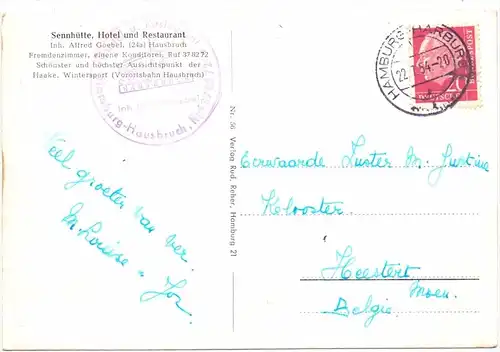 Sennhütte, Hotel und Restaurant
Inh. Alfred Goebel, (24a) Hausbruch
Fremdenzimmer, eigene Konditorei, Ruf 378272
Schönster und höchster Aussichtspunkt der
Haake, Wintersport (Vorortsbahn Hausbruch)
Hamburg-Hausbruch,
HAMBURG-HARBURG
22. 54-20
20
Nr. 36 Verlag Rud. Reher, Hamburg 21
Veel groeten van ver
M. Louise - Jon
Eerwaarde Zuster M. Justine
Klooster
Heestert
Moen.
Belgie